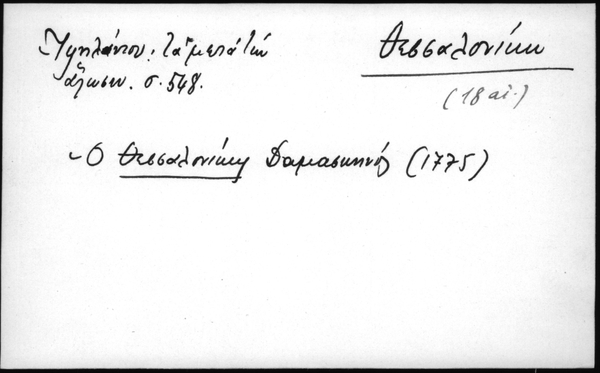 Ὑψηλάντου: Τὰ μετὰ τὴν
ἅλωσιν. σ. 548.
Θεσσαλονίκη
(18 αἰ.)
- Ὁ Θεσσαλονίκης Δαμασκηνός (1775)